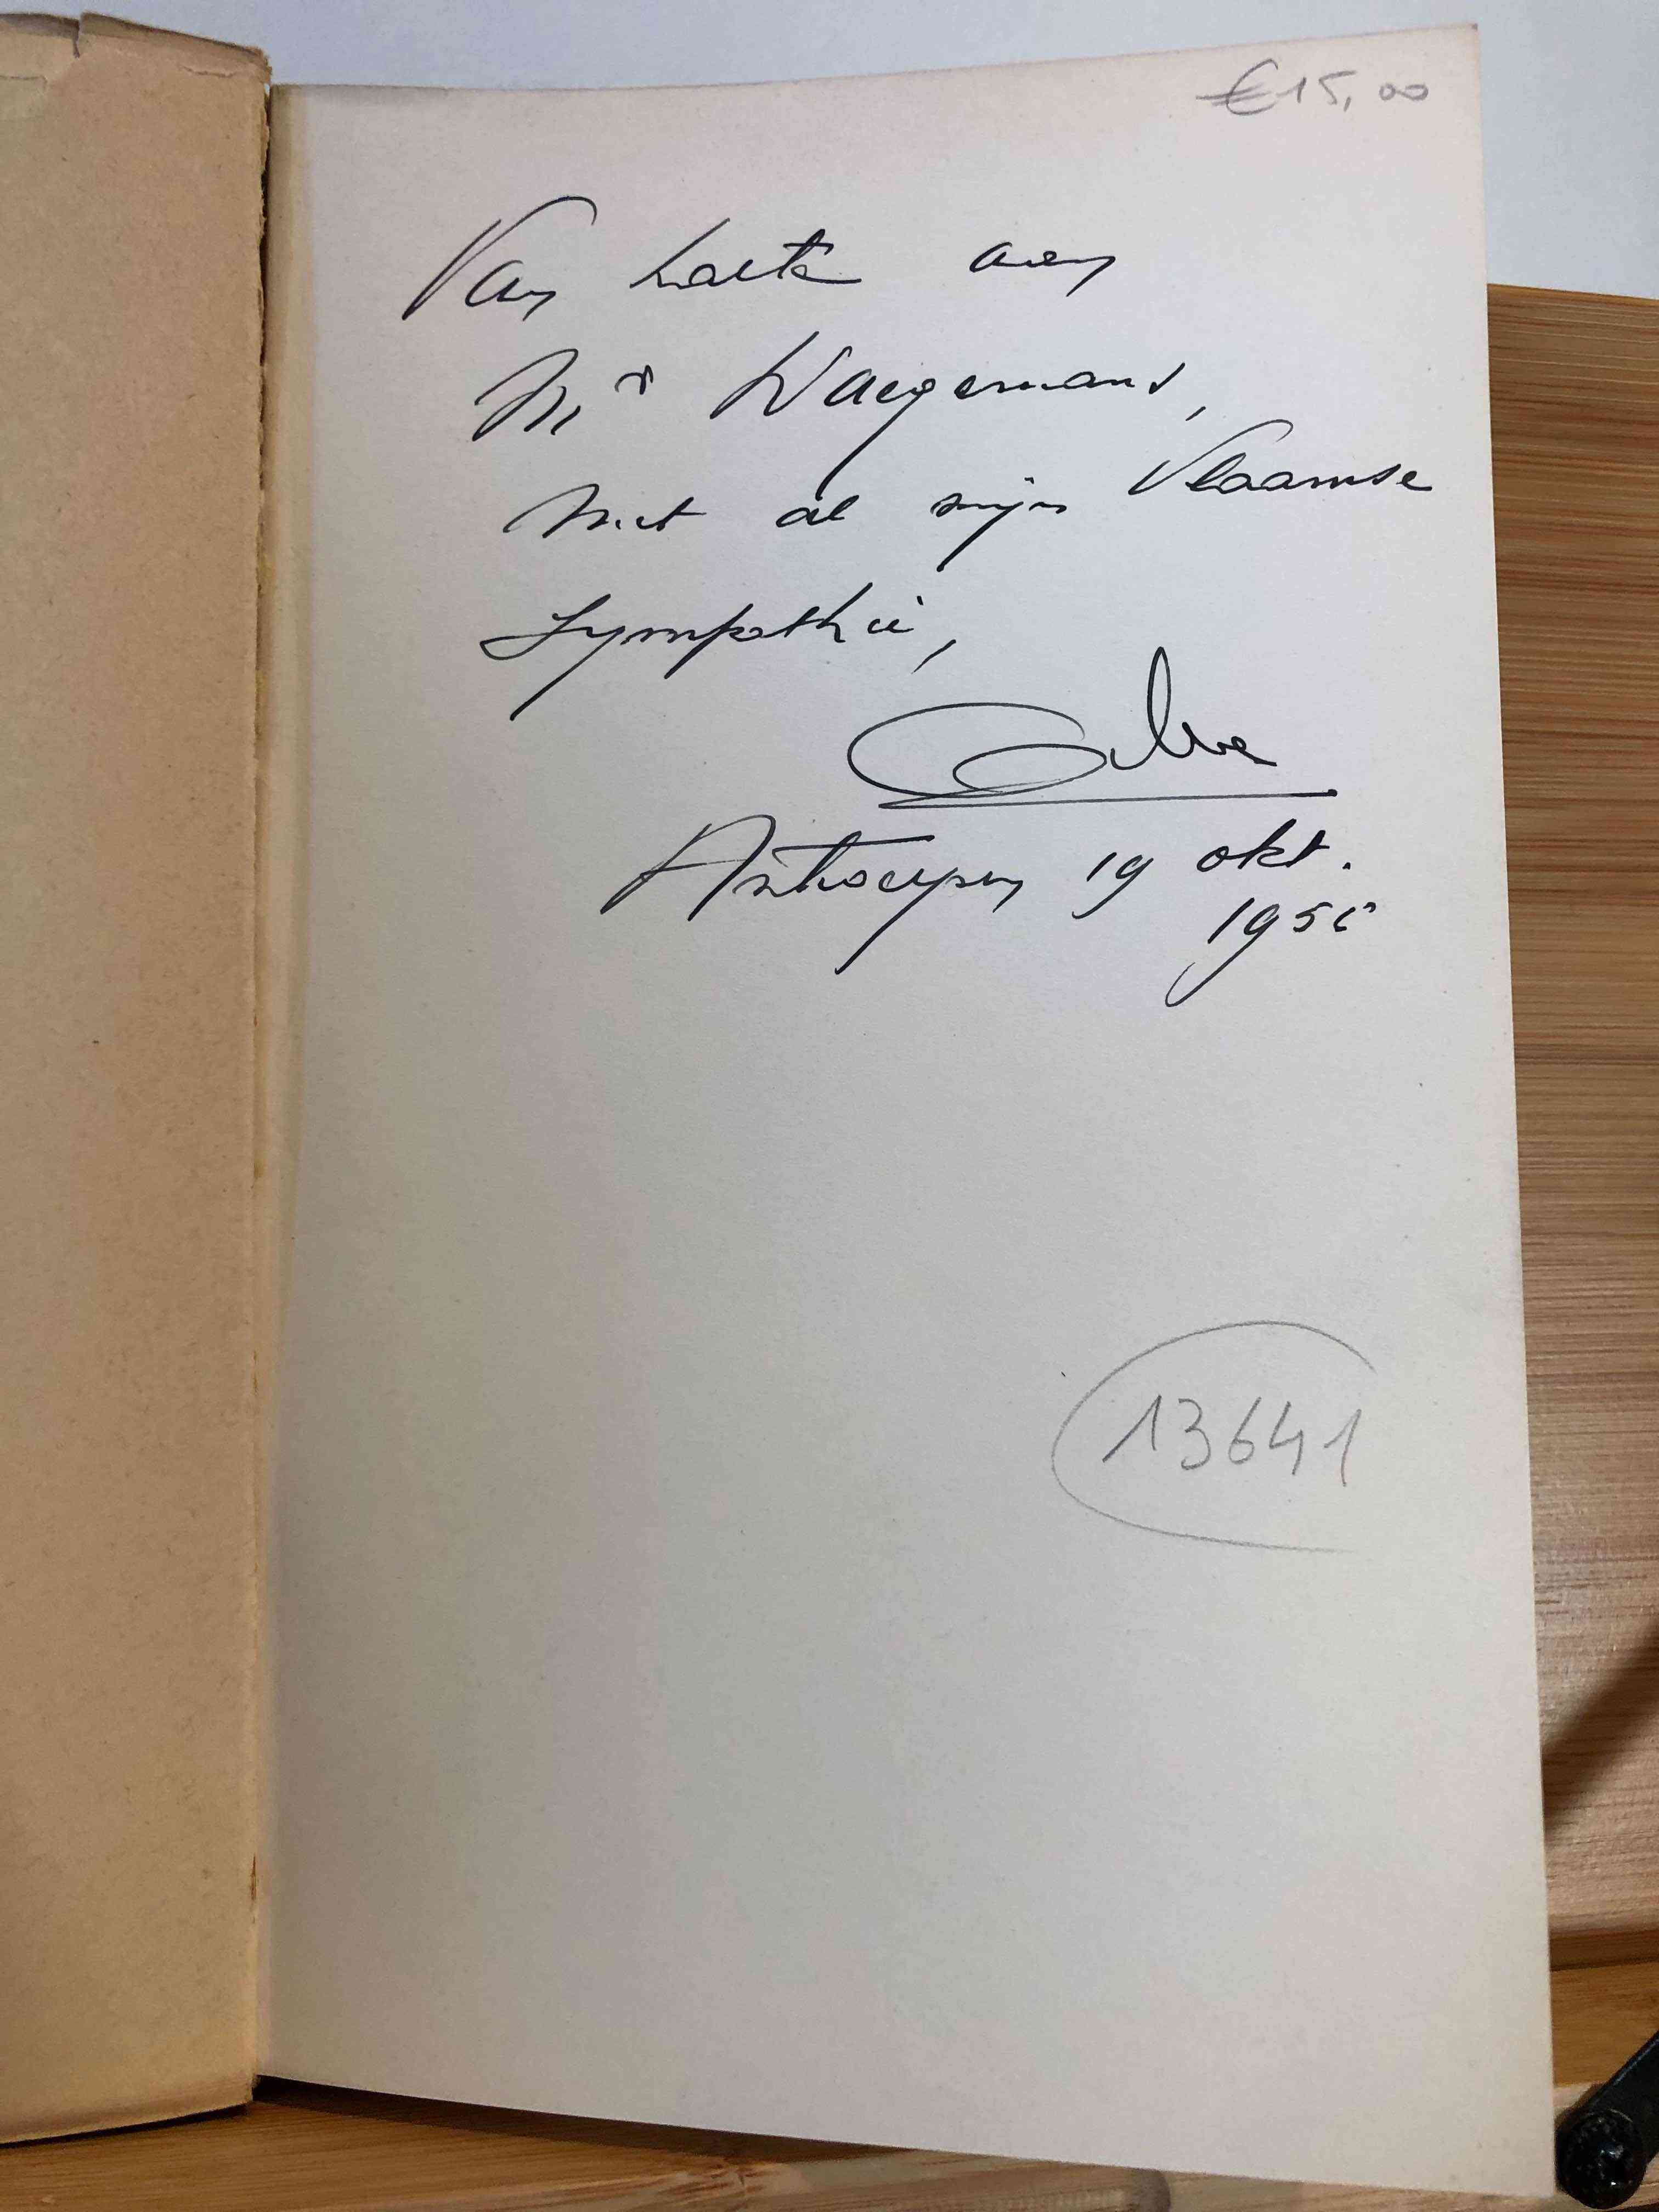 €15,00
Van harte aan
Mr Waegemans,
Met al mijn Vlaamse
Sympathie,
Antwerpen 19 okt.
13641